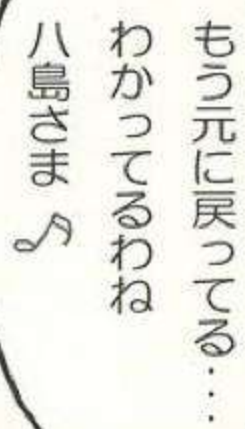 もう元に戻ってる・・・
わかってるわね
八島さま♪